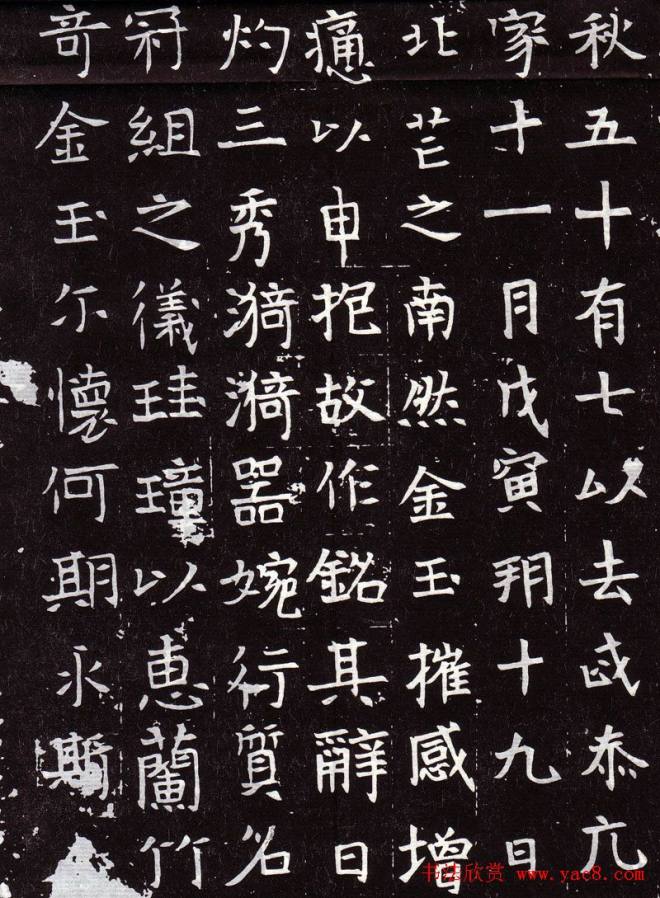 秋五十有七以去
家十一月戊寅朔十九日
北芒之南然金玉摧感增
以申抱故作銘其辭曰
灼三秀漪漪器婉行質名
冠組之儀珪璋以惠蘭竹
奇金玉尒懷何期永斯
书法欣赏 www.yac8.com